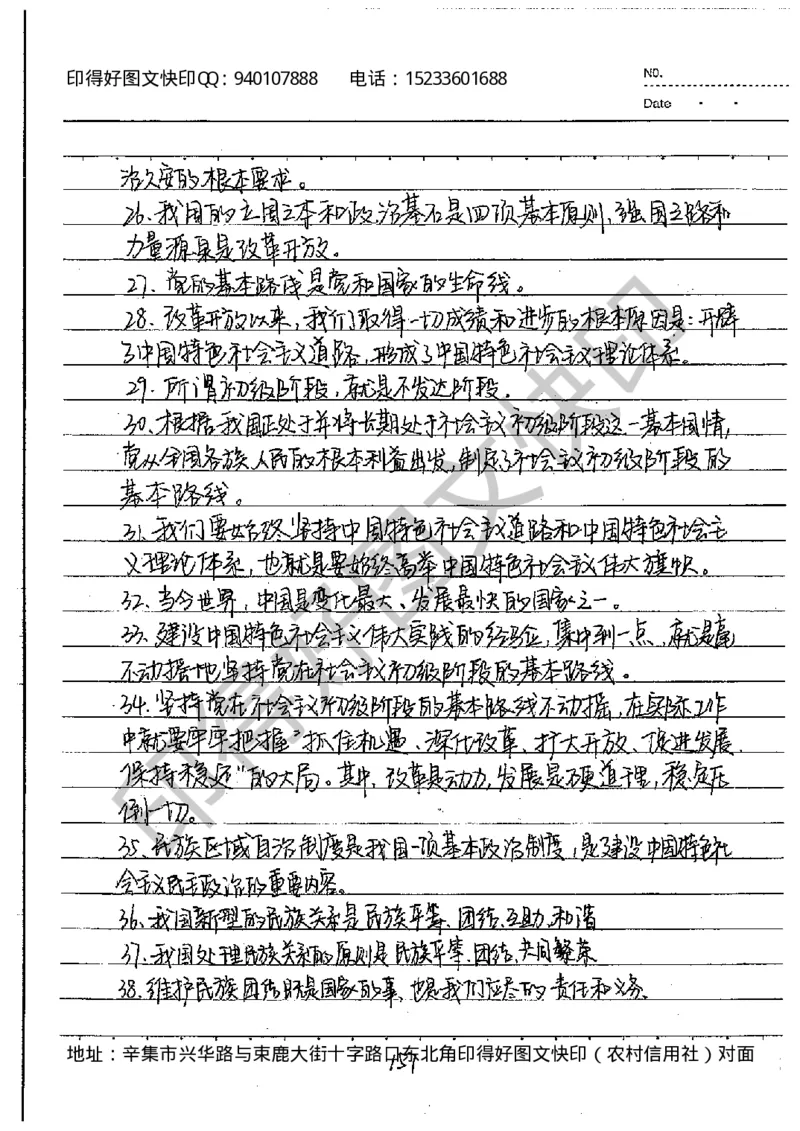 印得好图文快印QQ：940107888 电话：15233601688
NO.
Date
治久安的根本要求。
26、我国的立国之本和政治基石是四项基本原则，强国之路和
力量源泉是改革开放。
27、党的基本路线是党和国家的生命线。
28、改革开放以来，我们取得一切成绩和进步的根本原因是：开辟
了中国特色社会主义道路，形成了中国特色社会主义理论体系。
29、所谓初级阶段，就是不发达阶段。
30、根据我国正处于并将长期处于社会主义初级阶段这一基本国情，
党从全国各族人民的根本利益出发，制定了社会主义初级阶段的
基本路线。
31、我们要始终坚持中国特色社会主义道路和中国特色社会主
义理论体系，也就是要始终高举中国特色社会主义伟大旗帜。
32、当今世界，中国是变化最大、发展最快的国家之一。
33、建设中国特色社会主义伟大实践的经验，集中到一点，就是毫
不动摇地坚持党在社会主义初级阶段的基本路线。
34、坚持党在社会主义初级阶段的基本路线不动摇，在实际工作
中就要牢牢把握“抓住机遇、深化改革、扩大开放、促进发展、
保持稳定”的大局。其中，改革是动力，发展是硬道理，稳定压
倒一切。
35、民族区域自治制度是我国一项基本政治制度，是建设中国特色社
会主义民主政治的重要内容。
36、我国新型的民族关系是民族平等、团结、互助、和谐
37、我国处理民族关系的原则是民族平等、团结、共同繁荣
38、维护民族团结既是国家的事，也是我们应尽的责任和义务。
地址：辛集市兴华路与束鹿大街十字路口东北角印得好图文快印（农村信用社）对面
159
印得好图文快印